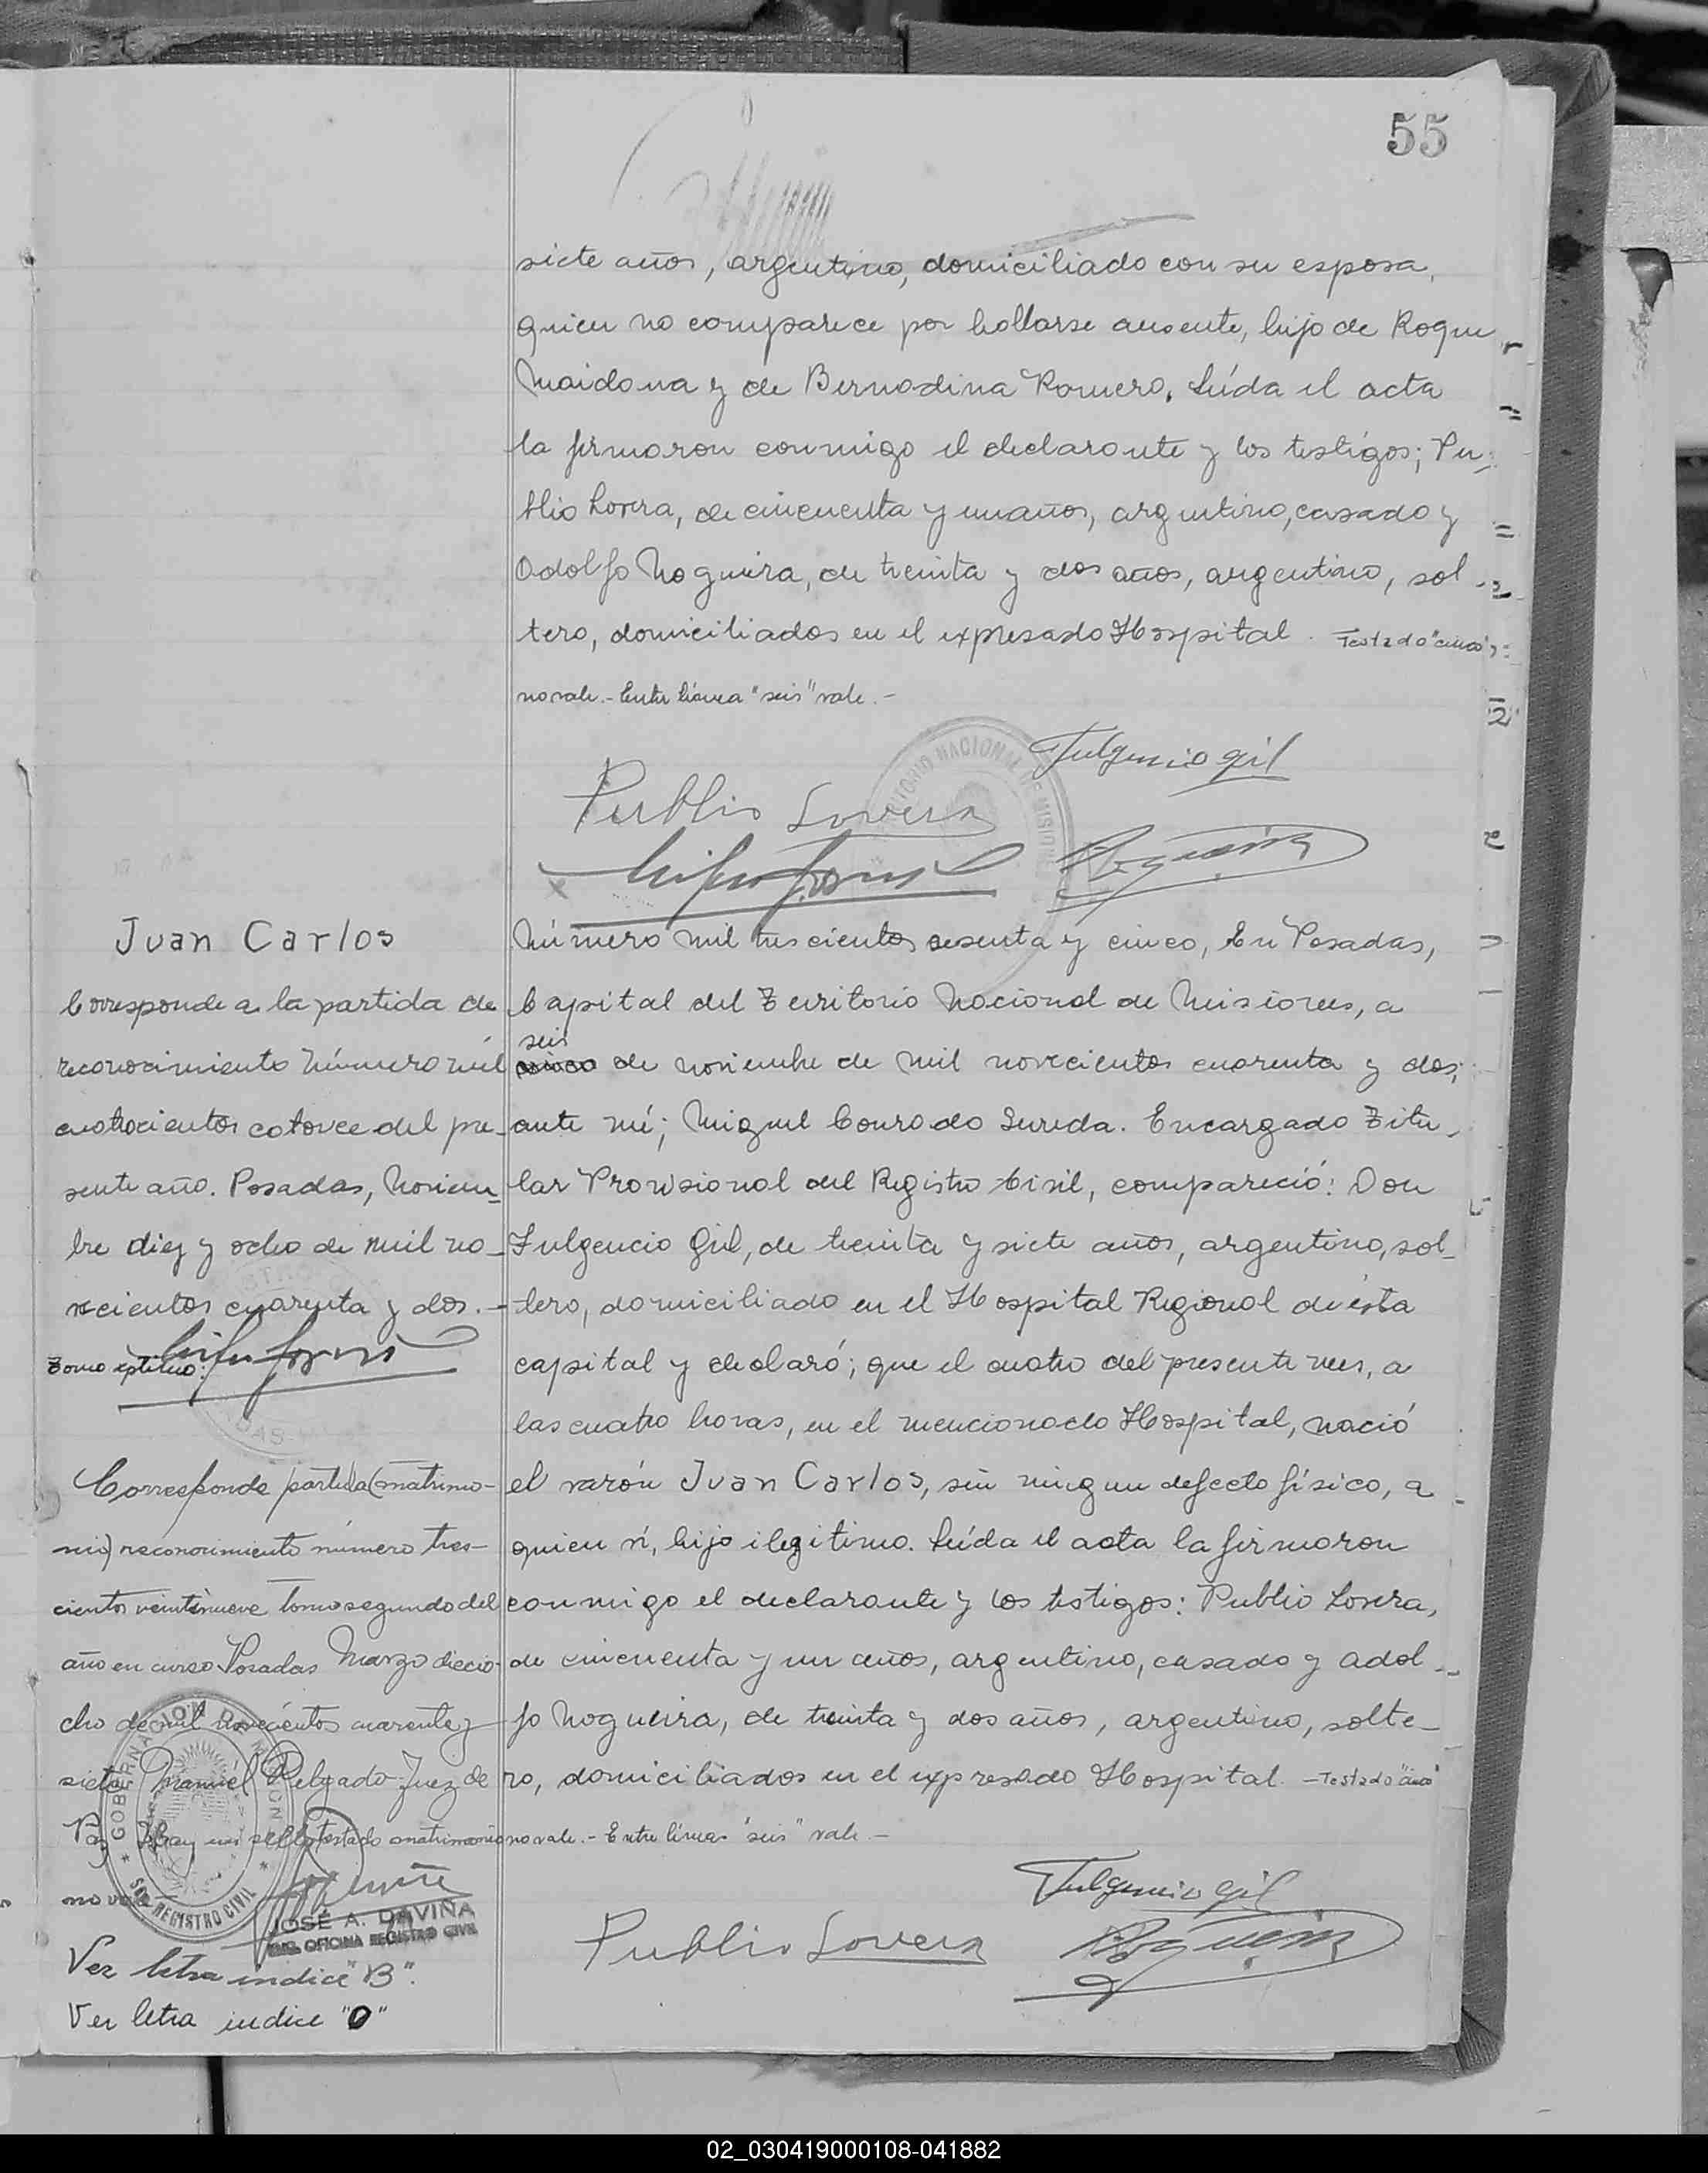 55
siete años, argentino, domiciliado con su esposa,
quien no comparece por hallarse ausente, hijo de Roque
Maidana y de Bernadina Romero. Leída el acta
la firmaron conmigo el declarante y los testigos; Pu-
blio Lovera, de cincuenta y un años, argentino, casado y
Adolfo Nogueira, de treinta y dos años, argentino, sol-
tero, domiciliados en el expresado Hospital. Testado "cinco"
no vale.- Entre línea "seis" vale.-
Fulgencio Gil
Publio Lovera
TERRITORIO NACIONAL DE MISIONES
Juan Carlos
Corresponde a la partida de
reconocimiento número mil
cuatrocientos catorce del pre-
sente año. Posadas, Noviem-
bre diez y ocho de mil no-
vecientos cuarenta y dos.-
Tomo séptimo.
Corresponde partida (matrimo-
nio) reconocimiento número tres-
cientos veintinueve tomo segundo del
año en curso Posadas Marzo diecio-
cho de mil novecientos cuarenta y
siete Manuel Delgado Juez de
Paz Hay un sello testado matrimonio
no vale
GOBERNACION DE MISIONES
REGISTRO CIVIL
JOSÉ A. DAVIÑA
ENC. OFICINA REGISTRO CIVIL
Ver letra indice "B".
Ver letra indice "O"
Número mil trescientos sesenta y cinco, En Posadas,
Capital del Territorio Nacional de Misiones, a
seis
cinco de noviembre de mil novecientos cuarenta y dos;
ante mí; Miguel Conrado Sureda. Encargado Titu-
lar Provisional del Registro Civil, compareció: Don
Fulgencio Gil, de treinta y siete años, argentino, sol-
tero, domiciliado en el Hospital Regional de ésta
capital y declaró; que el cuatro del presente mes, a
las cuatro horas, en el mencionado Hospital, nació
el varón Juan Carlos, sin ningun defecto físico, a
quien ví, hijo ilegitimo. Leída el acta la firmaron
conmigo el declarante y los testigos: Publio Lovera,
de cincuenta y un años, argentino, casado y Adol-
fo Nogueira, de treinta y dos años, argentino, solte-
ro, domiciliados en el expresado Hospital. -Testado "cinco"
no vale.- Entre líneas "seis" vale.-
Fulgencio Gil
Publio Lovera
02_030419000108-041882